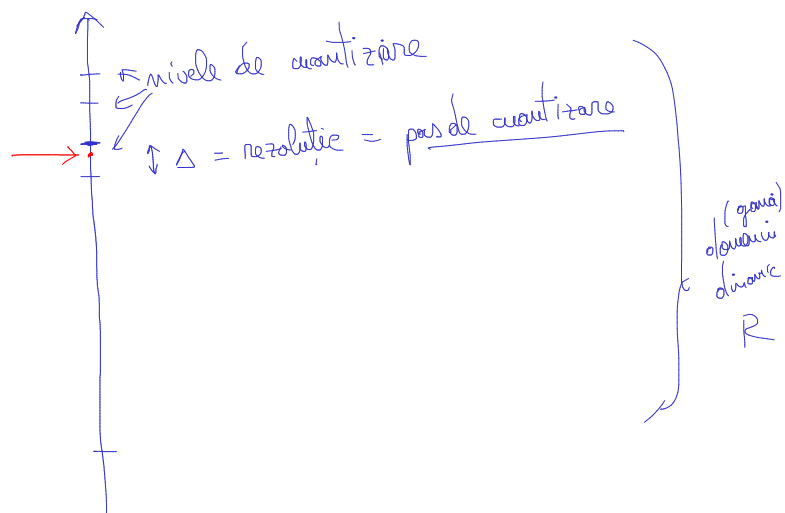 nivele de cuantizare
Δ = rezoluție = pas de cuantizare
(gamă)
domeniu
dinamic
R